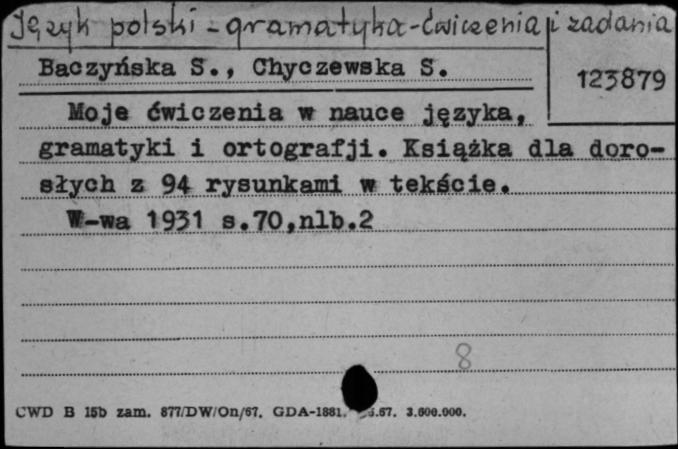 Język polski - gramatyka - ćwiczenia i zadania
Baczyńska S., Chyczewska S.
123879
Moje ćwiczenia w nauce języka,
gramatyki i ortografji. Książka dla doro-
słych z 94 rysunkami w tekście.
W-wa 1931 s.70,nlb.2
8
CWD B 15b zam. 877/DW/On/67. GDA-1881. .67. 3.600.000.